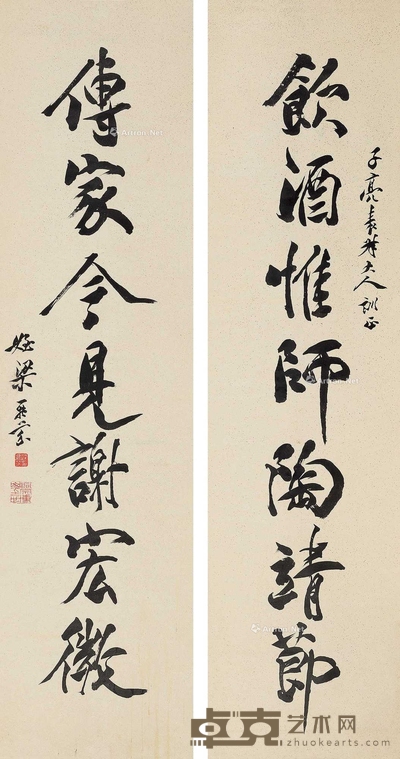 飲酒惟師陶靖節
子亮表大人訓正
傳家今見謝宏微
姪梁
卓克艺术网
www.zhuokearts.com